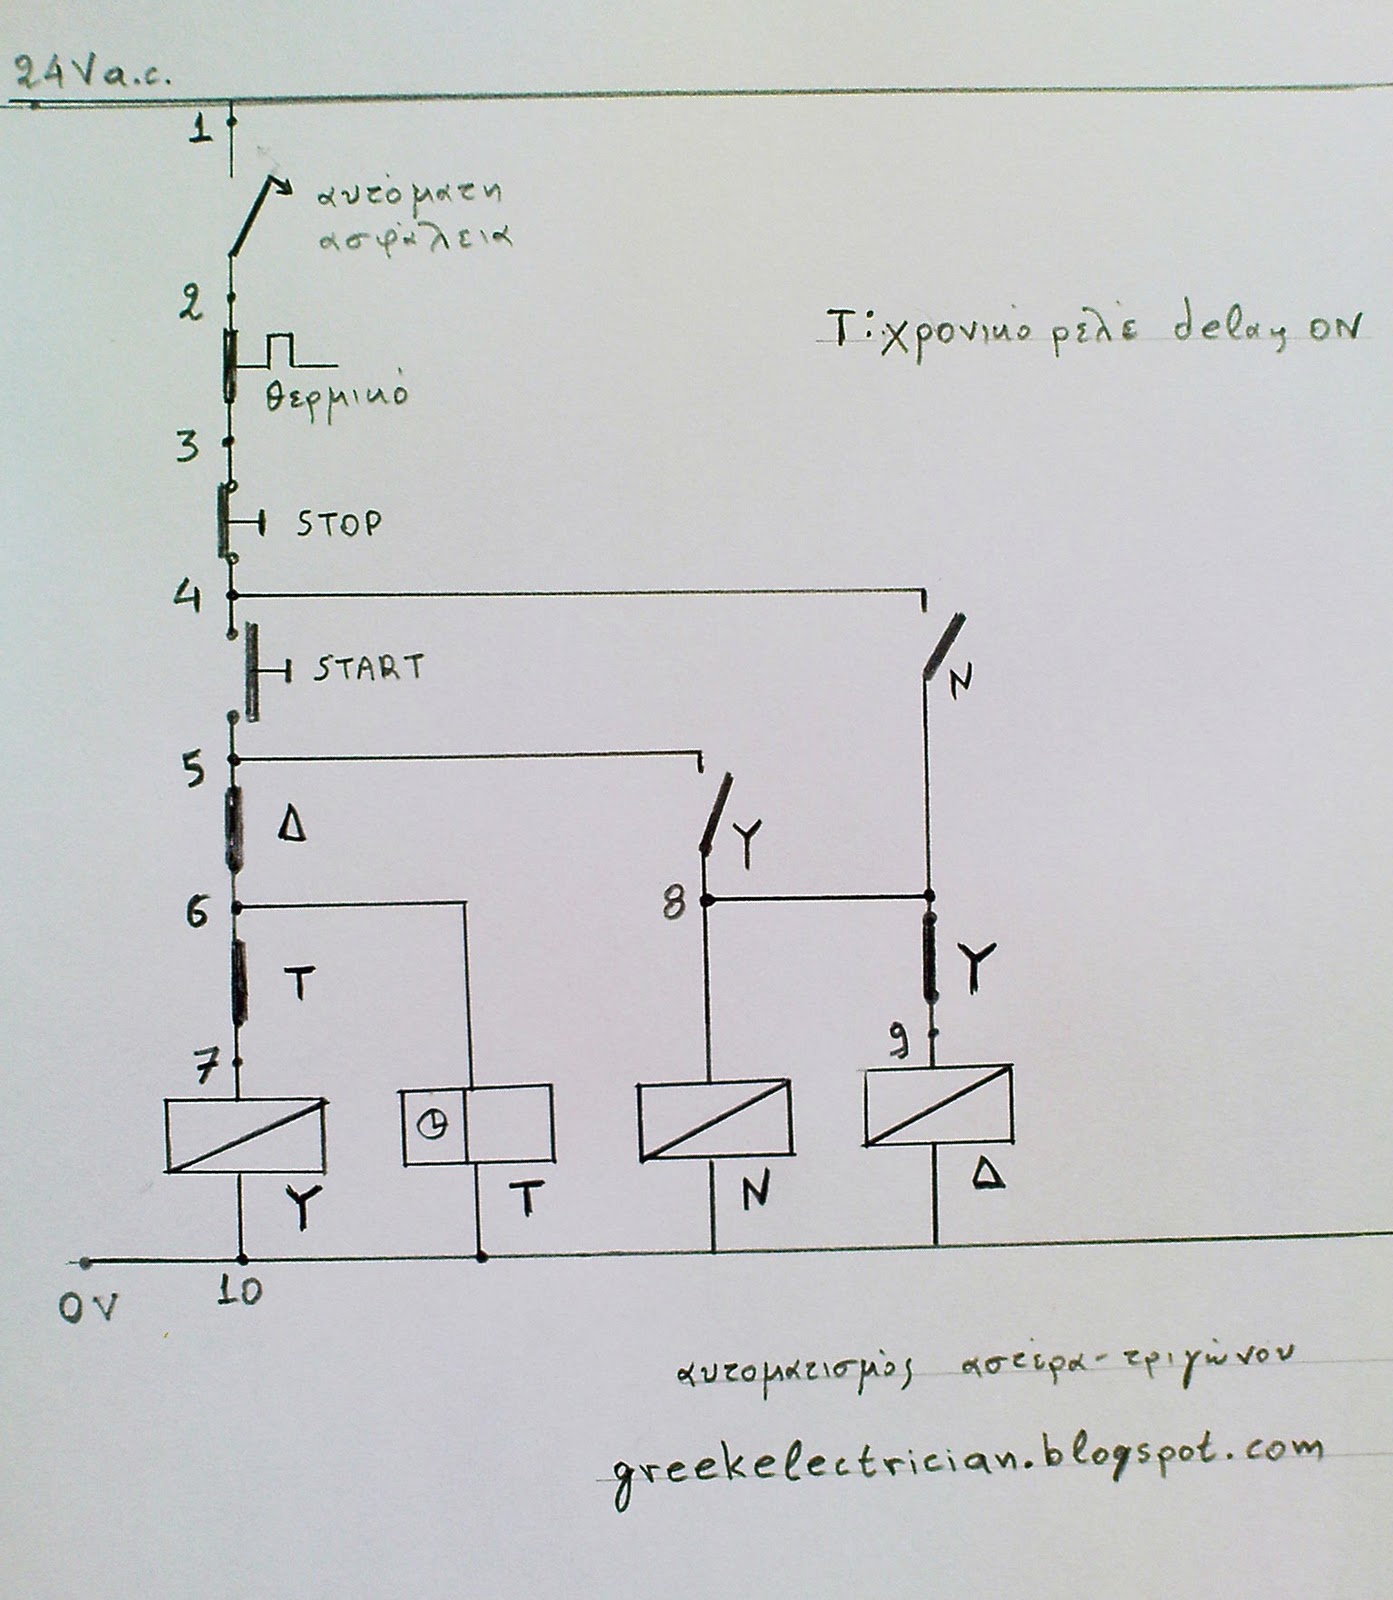 24Va.c.
1
αυτόματη
ασφάλεια
2
T: χρονικό ρελέ delay ON
θερμικό
3
STOP
4
START
N
5
Δ
Y
6
8
T
Y
7
9
Y
T
N
Δ
0V
10
αυτοματισμός αστέρα-τριγώνου
greekelectrician.blogspot.com